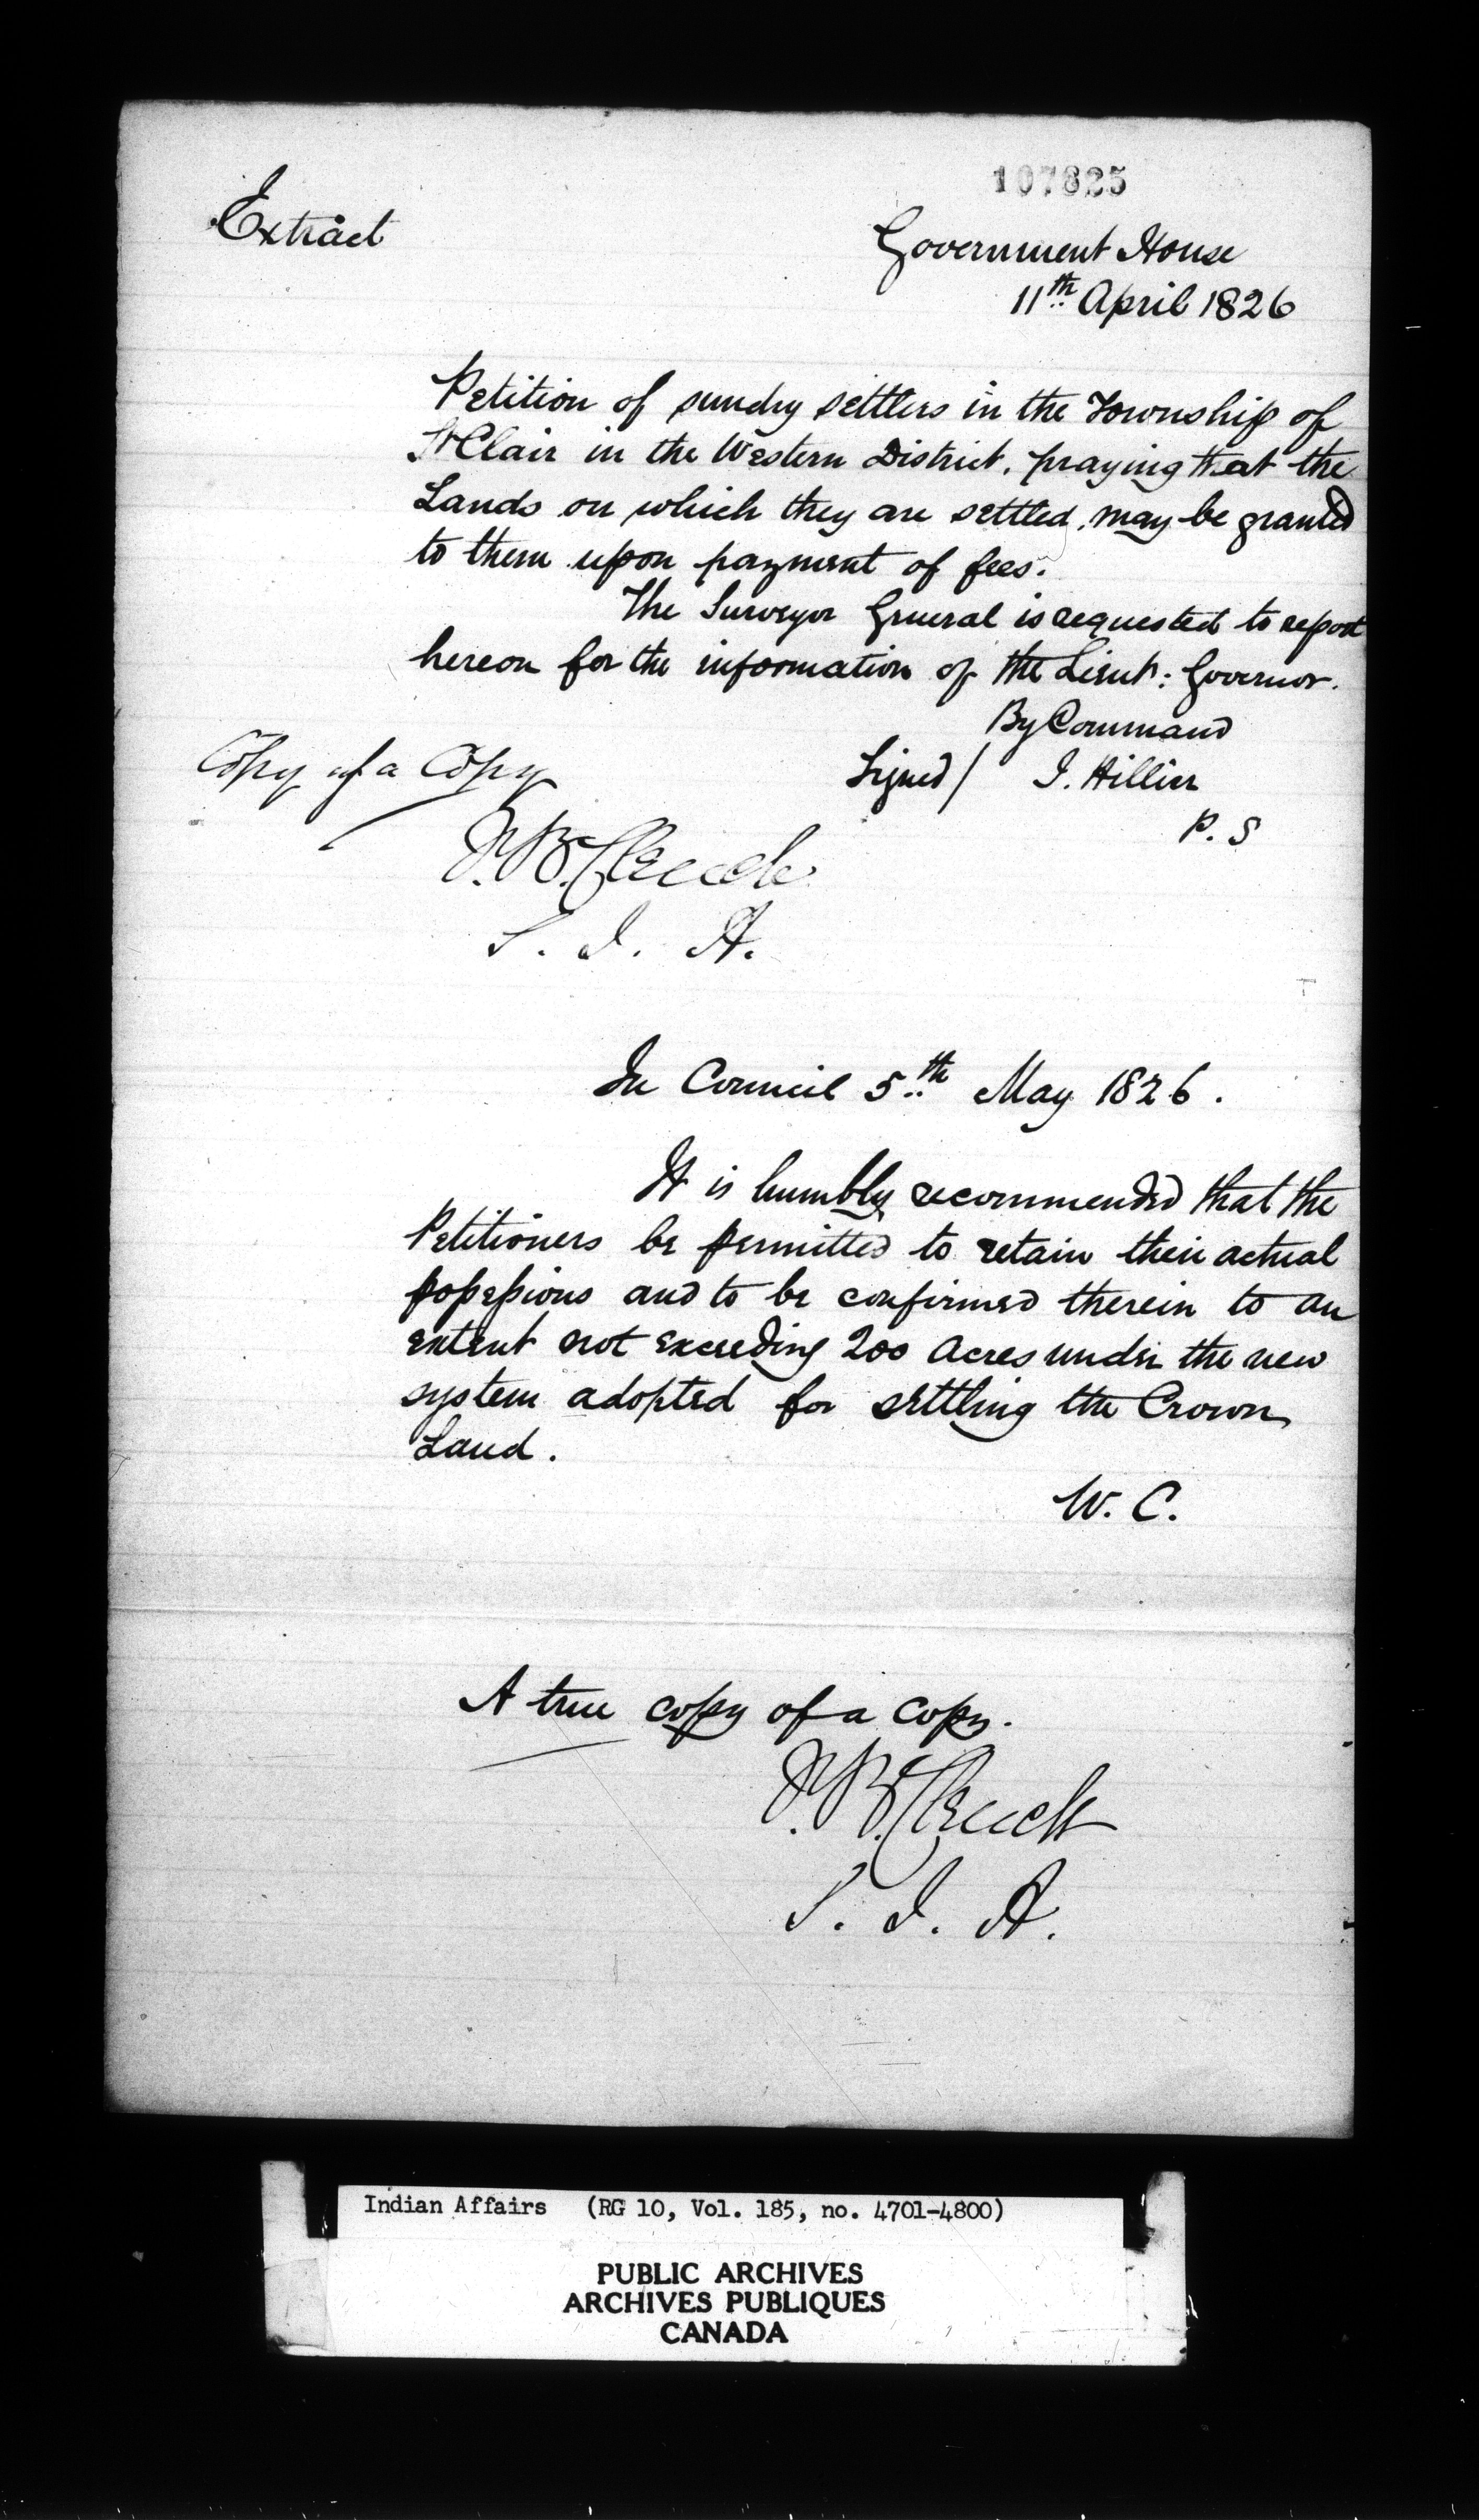 107825
Extract
Government House
11th April 1826
Petition of sundry settlers in the Township of
St Clair in the Western District, praying that the
Lands on which they are settled, may be granted
to them upon payment of fees.
The Surveyor General is requested to report
hereon for the information of the Lieut: Governor.
By Command
Signed / J. Hillier
P. S
Copy of a Copy
J. B. Clench
S. I. A.
In Council 5th May 1826.
It is humbly recommended that the
Petitioners be permitted to retain their actual
possessions and to be confirmed therein to an
extent not exceeding 200 Acres under the new
system adopted for settling the Crown
Land.
W. C.
A true copy of a copy.
J. B. Clench
S. I. A.
Indian Affairs (RG 10, Vol. 185, no. 4701-4800)
PUBLIC ARCHIVES
ARCHIVES PUBLIQUES
CANADA